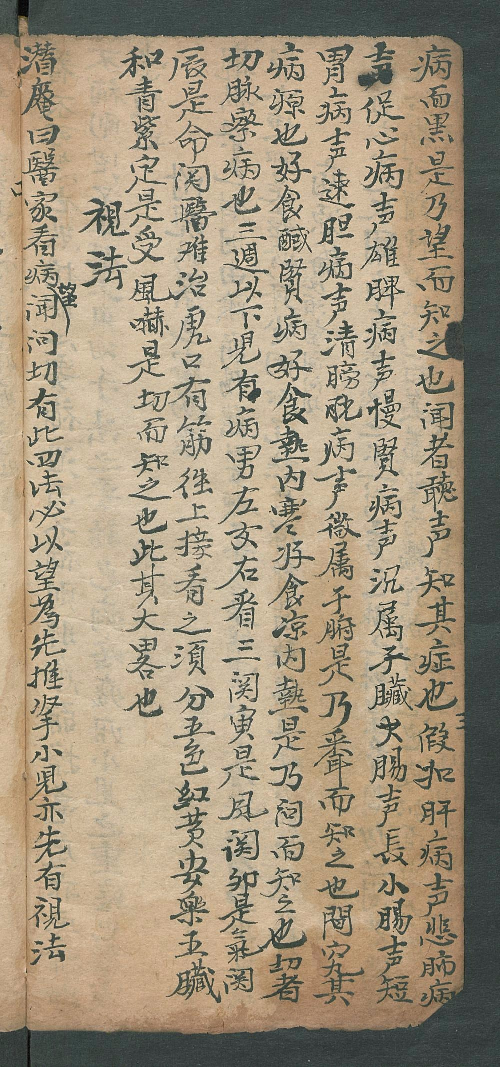 病而黑是乃望而知之也闻者聽声知其症也假如肝病声悲肺病
声促心病声雄脾病声慢賢病声沉属子臟大腸声長小腸声短
胃病声速胆病声清膀胱病声微属于腑是乃聽而知之也問究其
病源也好食醎賢病好食熱内寒好食凉内熱是乃问而知之也切者
切脉察病也三週以下児有病男左女右看三関寅是风関卯是氣関
辰是命関醫难治虎口有筋往上接看之須分五色紅黄安樂五臟
和青紫定是受風嚇是切而知之也此其大畧也
視法
潜庵曰醫家看病望闻问切有此四法必以望為先推拏小児亦先有視法